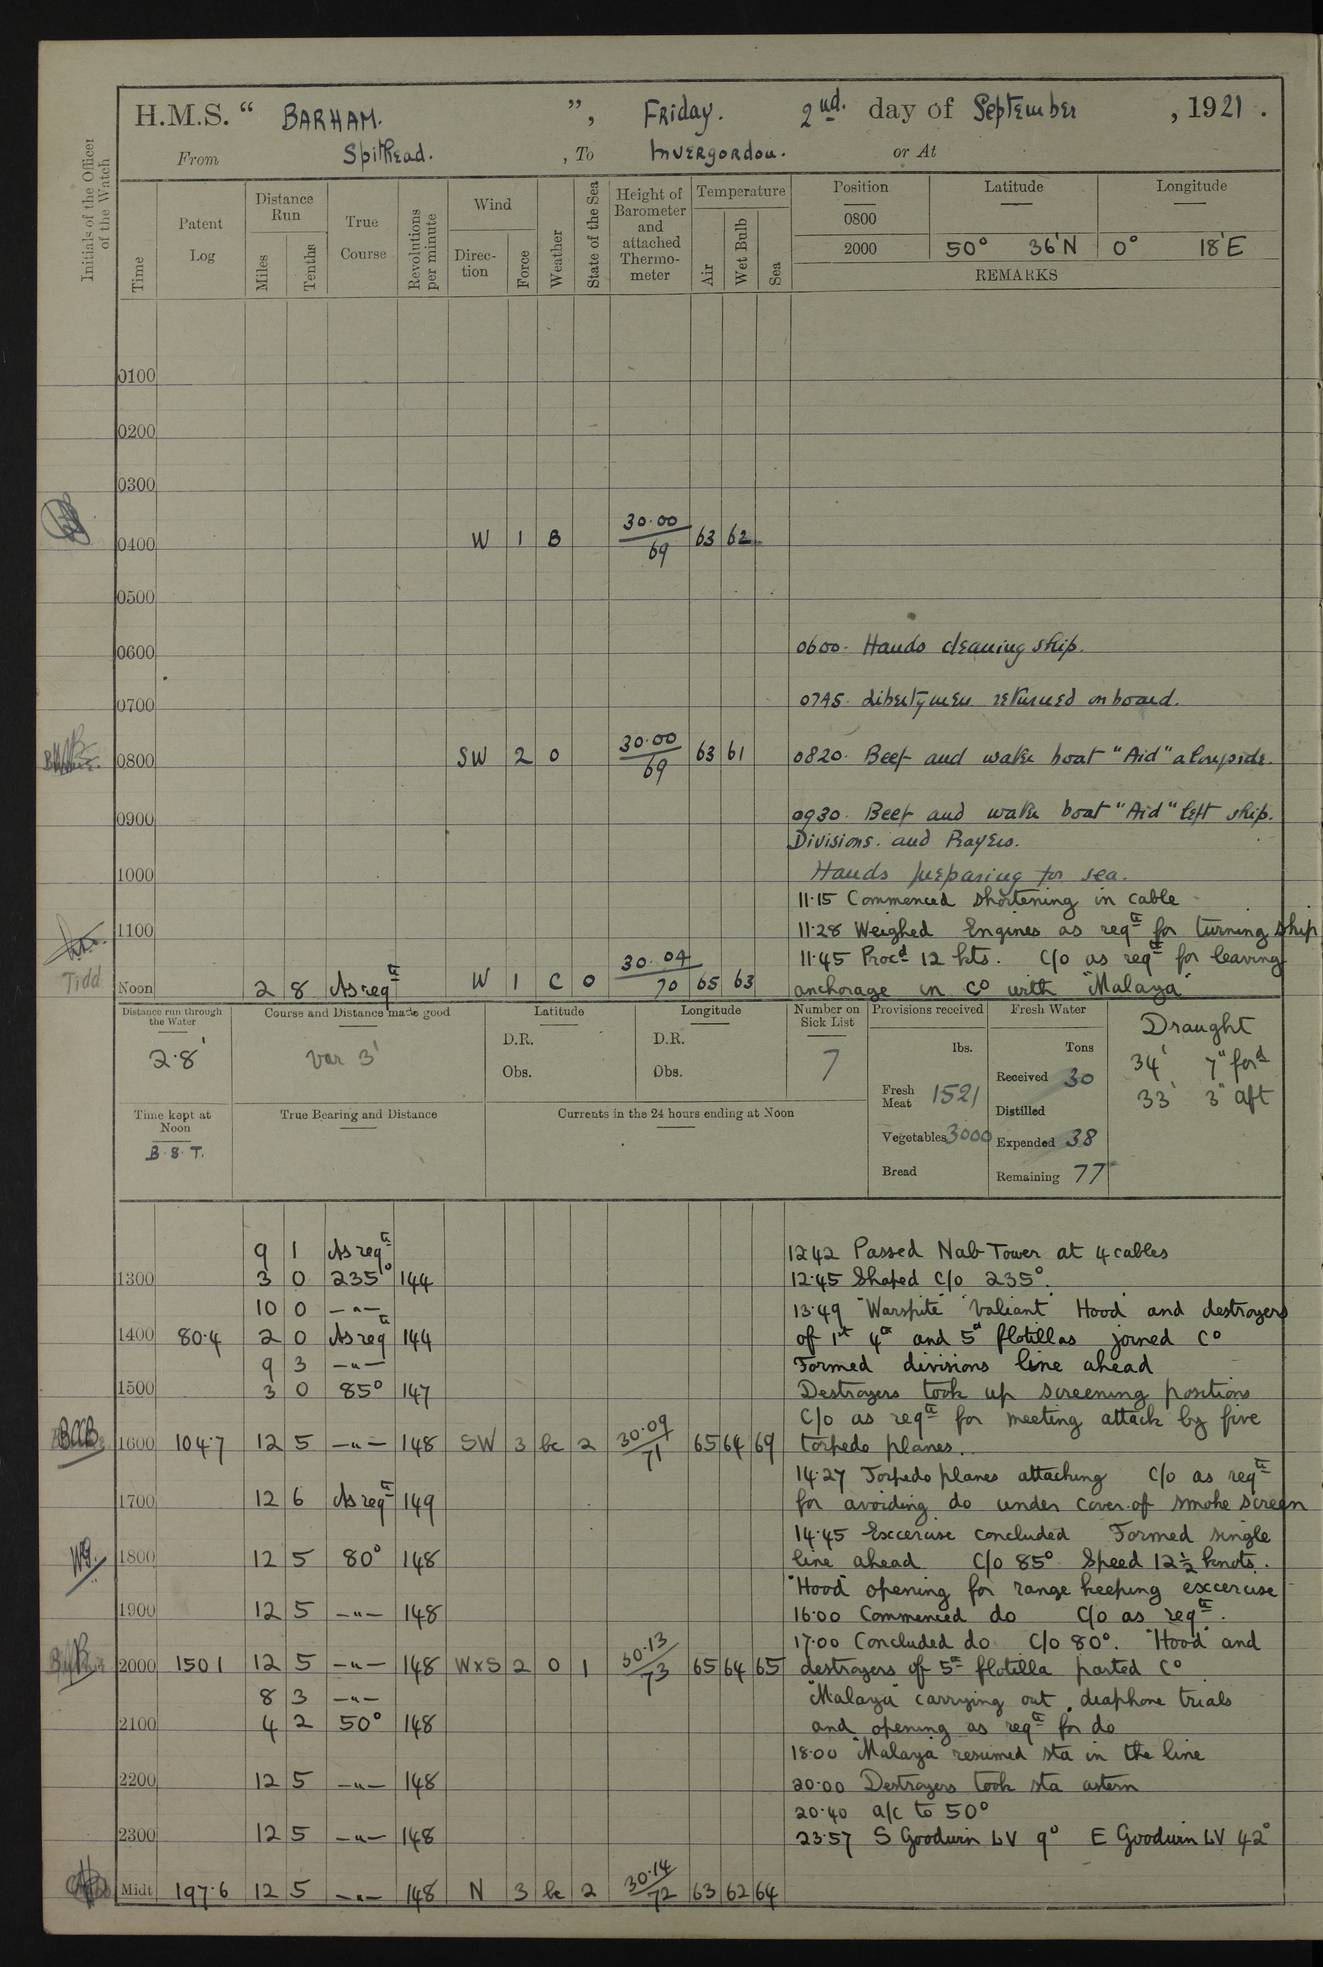 H.M.S. “ BARHAM. ”, Friday. 2nd. day of September , 1921 .
From Spithead. , To Invergordon. or At
Initials of the Officer of the Watch
Time Patent Log Distance Run Miles Tenths True Course Revolutions per minute Wind Direction Force Weather State of the Sea Height of Barometer and attached Thermometer Temperature Air Wet Bulb Sea
Position Latitude Longitude
0800
2000 50° 36'N 0° 18'E
REMARKS
0100
0200
0300
0400 W 1 B 30·00/69 63 62
0500
0600 0600. Hands cleaning ship.
0700 0745. Libertymen returned on board.
0800 SW 2 0 30·00/69 63 61 0820. Beef and water boat "Aid" alongside.
0900 0930. Beef and water boat "Aid" left ship.
Divisions. and Prayers.
1000 Hands preparing for sea.
11·15 Commenced shortening in cable
1100 11·28 Weighed Engines as reqte for turning ship
11·45 Procd 12 kts. C/o as reqte for leaving
Tidd Noon 2 8 As reqte W 1 C 0 30·04/70 65 63 anchorage in Co with "Malaya"
Distance run through the Water 2·8'
Course and Distance made good var 3'
Latitude D.R. Obs.
Longitude D.R. Obs.
Number on Sick List 7
Provisions received lbs.
Fresh Meat 1521
Vegetables 3000
Bread
Fresh Water Tons
Received 30
Distilled
Expended 38
Remaining 77
Draught
34' 7" ford
33' 3" aft
Time kept at Noon B.S.T.
True Bearing and Distance
Currents in the 24 hours ending at Noon
9 1 As reqte 12·42 Passed Nab Tower at 4 cables
1300 3 0 235° 144 12·45 Shaped C/o 235°.
10 0 —"— 13·49 "Warspite" "Valiant" Hood and destroyers
1400 80·4 2 0 As req 144 of 1st 4th and 5th flotillas joined Co
9 3 —"— Formed divisions line ahead
1500 3 0 85° 147 Destroyers took up screening positions
C/o as reqte for meeting attack by five
BCB 1600 104·7 12 5 —"— 148 SW 3 bc 2 30·09/71 65 64 69 torpedo planes.
14·27 Torpedo planes attacking C/o as reqte
1700 12 6 As reqte 149 for avoiding do under cover of smoke screen
14·45 Excercise concluded Formed single
1800 12 5 80° 148 line ahead C/o 85° Speed 12½ knots.
"Hood" opening for range keeping excercise
1900 12 5 —"— 148 16·00 Commenced do C/o as reqte.
17·00 Concluded do C/o 80°. "Hood" and
2000 150 1 12 5 —"— 148 WxS 2 0 1 30·13/73 65 64 65 destroyers of 5th flotilla parted Co
8 3 —"— "Malaya" carrying out diaphone trials
2100 4 2 50° 148 and opening as reqte for do
18·00 "Malaya" resumed sta in the line
2200 12 5 —"— 148 20·00 Destroyers took sta astern
20·40 a/c to 50°
2300 12 5 —"— 148 23·57 S Goodwin LV 9° E Goodwin LV 42°
Midt 197·6 12 5 —"— 148 N 3 bc 2 30·14/72 63 62 64